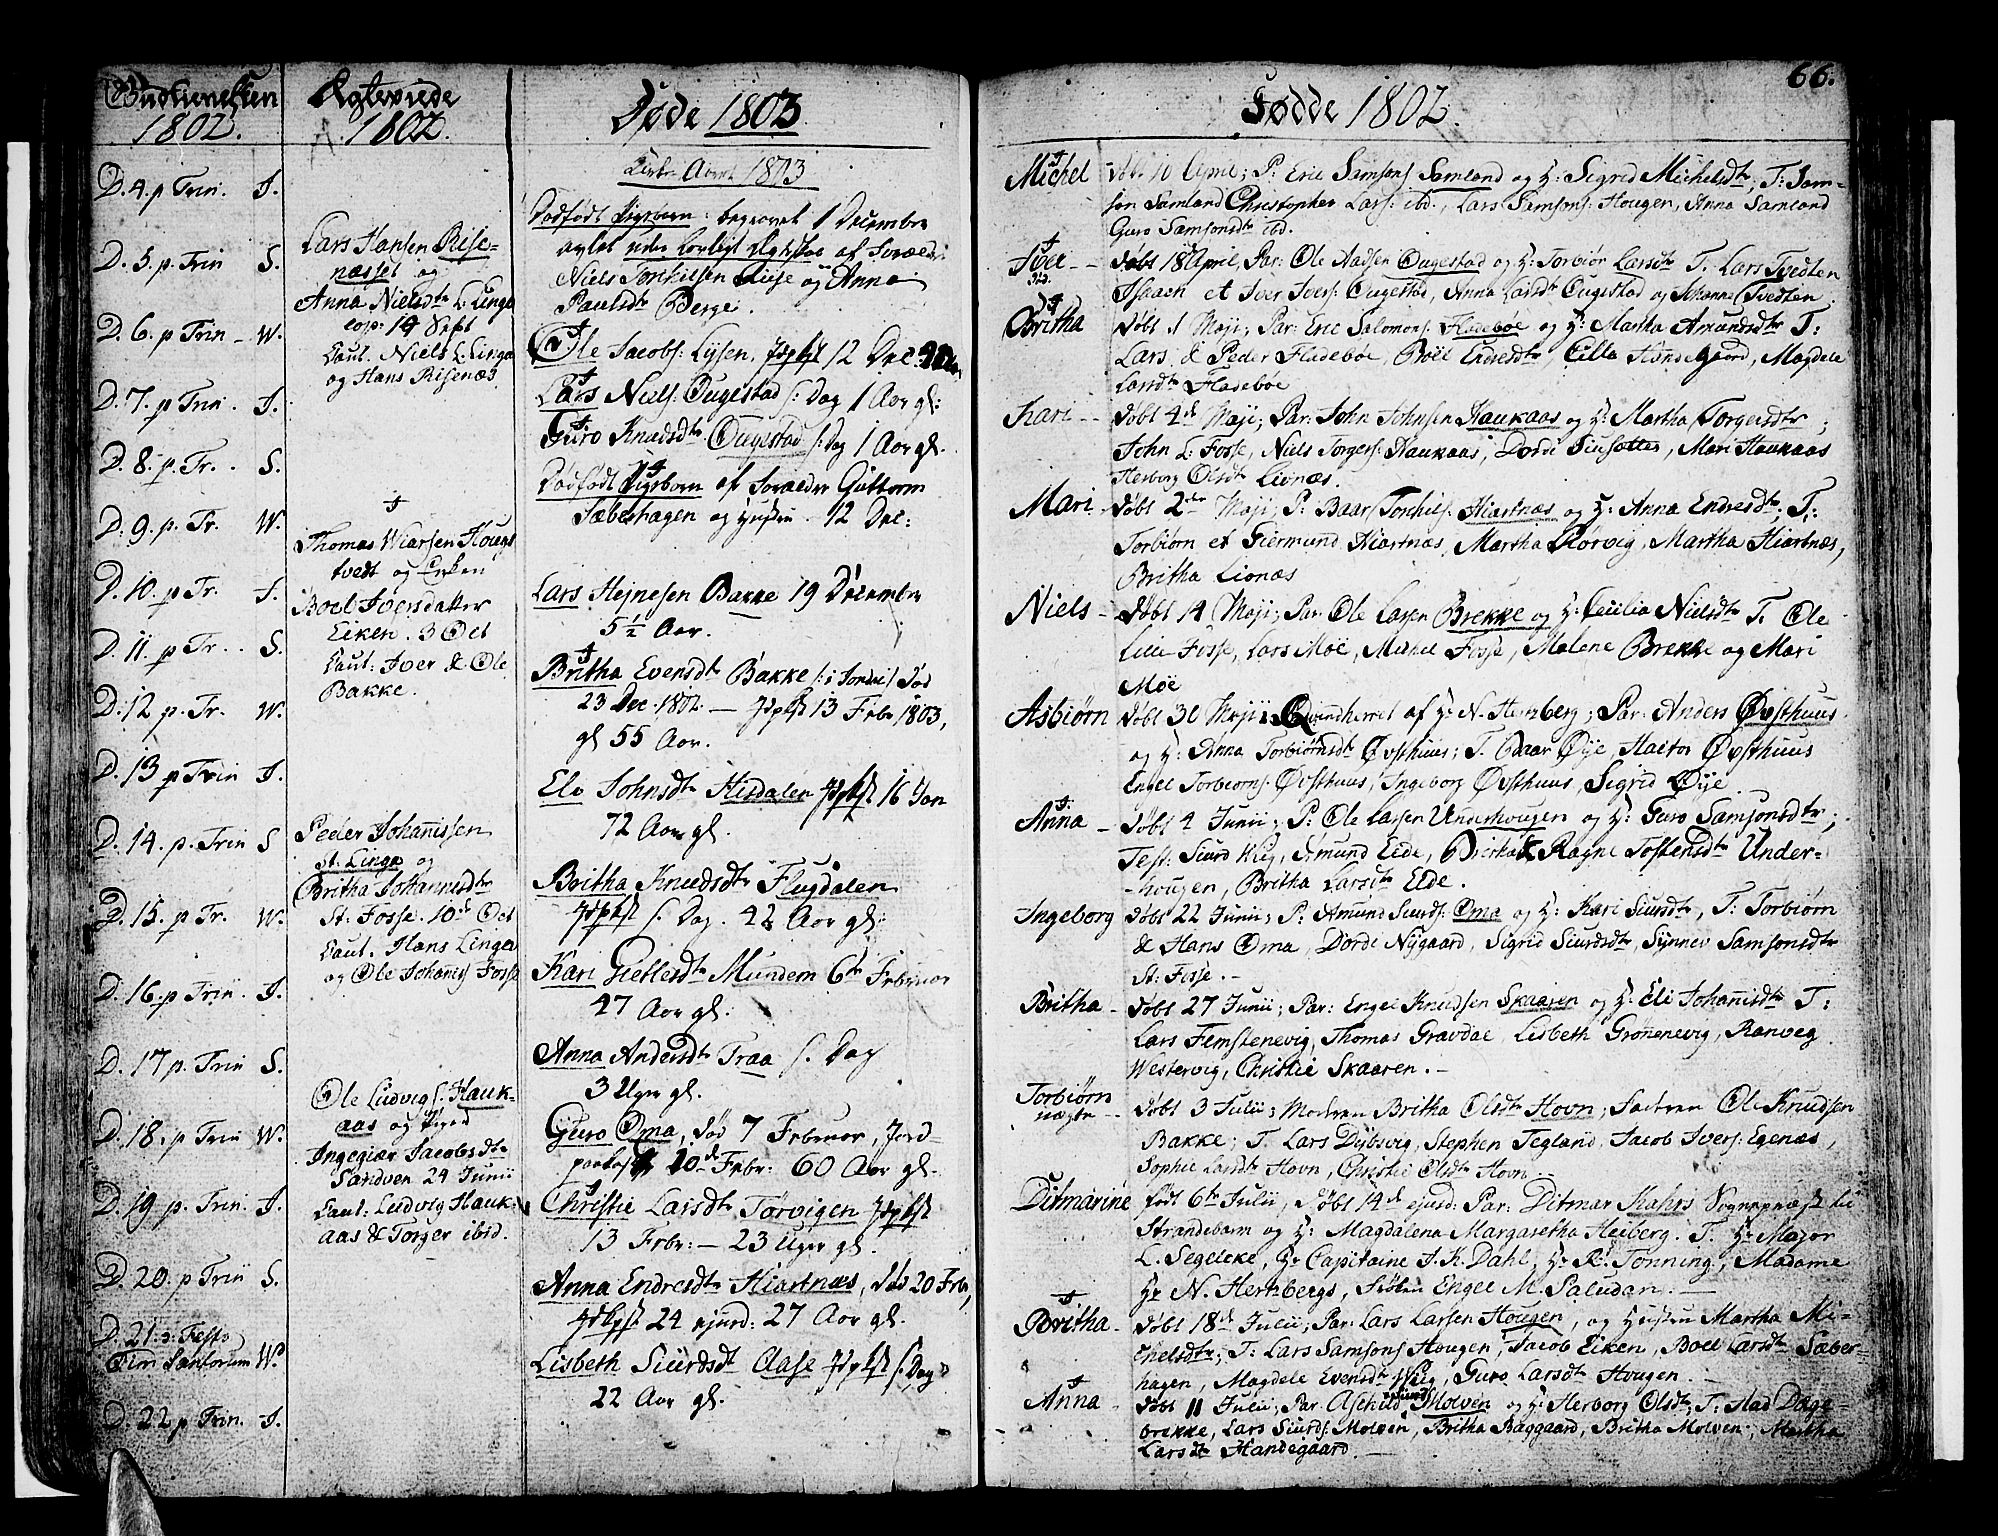 Gudstienesten
1802.
D. 4. p Trin. J.
D. 5. p. Trin S.
D. 6. p Trin - W.
D. 7. p Trin. J.
D. 8. p. Tr. . S.
D. 9. p. Tr. W.
D. 10. p Tr. J.
D. 11. p Tr. . S.
D. 12 p. Tr. W.
D. 13 p Trin J.
D. 14. p. Trin S
D. 15. p Tr. W.
D. 16. p Trin. J.
D. 17 p. Trin S.
D. 18. p Trin W.
D. 19. p Trin. J.
D. 20. p Trin S.
D. 21. s: Fest:
Om Sanctorum W.
D. 22 p Trin. J.
Ægteviede
1802.
Lars Hansen Rise-
næsset og
Anna Nielsdtr L. Linga
cop: 14 Sept
Caut. Niels L. Linga
og Hans Risenæs
Thomas Wiarsen Hougs
tvedt og Enken
Boel Iversdatter
Eiken. 3 Oct
Caut: Iver & Ole
Bakke.
Peder Johannissen
st. Linga og
Britha Johannesdtr
St: Fosse. 10d Oct
Caut. Hans Linga
og Ole Johannis Fosse
Ole Ludvigs. Hauk-
aas og Pigen
Ingegiær Jacobsdtr
Sandven 24 Junii
Caut: Ludvig Hauk-
aas & Torger ibid.
Døde 1803
Kirke Aaret 1803
Dødfødt Pigebarn: begravet 1 Decembr
avlet uden Lovligt Ægteskab af Forældre
Niels Torkilsen Ruse og Anna
Paulsdtr Berge.
Ole Jacobs: Lysen, Jdpkst 12 Dec.
Lars Niels: Ougestad s: Dag 1 Aar gl:
Guro Knudsdtr Ougestad s: Dag 1 Aar gl.
Dødfødt Pigebarn af Forældre Guttorm
Sæberhagen og Hustru. 12 Dec:
Lars Hejnesen Bakke 19 Decembre
5½ Aar.
Britha Evensdtr Bakke /: i Jondal / Død
23 Dec. 1802. — Jdpkst 13 Febr 1803,
gl 55 Aar.
Ele Johnsdtr Hisdalen Jdpkst 16 Jan
72 Aar gl.
Britha Knudsdtr Flugdalen
Jdpkst s. Dag. 42 Aar gl:
Kari Gietlesdtr Mundem 6te Februar
47 Aar gl:
Anna Andersdtr Traa s. Dag
3 Uger gl.
Guro Oma, Død 7 Februar, Jord-
paakast 20d Febr: 60 Aar gl.
Christie Larsdtr Tørvigen Jdpkst
13 Febr: — 23 Uger gl.
Anna Endresdtr Hiartnæs, Død 20 Febr,
Jdpkst 24 ejusd: 27 Aar gl.
Lisbeth Siurdsdt Aase Jdpkst s. Dag
22 Aar gl.
66.
Fødde 1802.
Michel døbt 10 April; P: Eric Samsons Samland og H: Sigrid Michelsdtr, T: Sam-
son Samland Christopher Lars: ibd., Lars Samsons: Hougen, Anna Samland
Guro Samsonsdtr ibd.
Iver - - Døbt 18 April, Par: Ole Aadsen Ougestad og H: Torbiør Larsdtr T. Lars Tvedten
Isaach et Iver Ivers: Ougestad, Anna Larsdtr Ougestad og Johanne Tvedten
Britha Døbt 1 Maji; Par: Eric Salomons: Fladebøe og H: Martha Amundsdtr T:
Lars & Peder Fladebøe, Boël Endresdtr, Cilla Handegaard, Magdele
Larsdtr Fladebøe
Kari - - Døbt 4d Maji; Par: John Johnsen Haukaas og H: Martha Torgersdtr;
John L: Fosse, Niels Torgers: Haukaas, Dordi Siusetter, Mari Haukaas
Herborg Olsdtr Lionæs.
Mari - Døbt 2den Maji; P: Baar Torchils. Hiartnæs og H: Anna Endresdtr. T:
Torbiørn et Giermund Hiartnæs, Martha Rørvig, Martha Hiartnæs,
Britha Lionæs
Niels - Døbt 14 Maji; Par: Ole Larsen Brekke og H: Cecilia Nielsdtr T. Ole
Lille Fosse, Lars Moe, Michel Fosse, Malene Brekke og Mari
Moe
Asbiørn Døbt 30 Maji i Qvindherret af Hr N. Hertzberg; Par: Anders Øvsthuus
og H: Anna Torbiørnsdtr Øvsthuus; T. Baar Øÿe, Hactor Øvsthuus
Engel Torbiorns: Øvsthuus, Ingeborg Øvsthuus, Sigrid Øÿe
Anna - Døbt 4 Junii; P: Ole Larsen Underhougen og H: Guro Samsonsdtr;
Test: Siurd Kug, Amund Eide, Ragne Tostensdtr Under-
hougen, Britha Larsdtr Eide.
Ingeborg Døbt 22 Junii; P: Amund Siurds: Oma og H: Kari Siursdtr, T: Torbiørn
& Hans Oma, Dordi Nÿgaard, Sigrid Siurdsdtr, Synnev Samsonsdtr
St: Fosse. -
Britha - Døbt 27 Junii; Par: Engel Knudsen Skaaren og H: Eli Johannisdtr T:
Lars Femstenevig, Thomas Gravdal, Lisbeth Grønenevig, Ranveg
Westervig, Christie Skaaren. -
Torbiørn
uægte - Døbt 3 Julii; Moderen Britha Olsdtr Hovn; Faderen Ole Knudsen
Bakke; T. Lars Dybsvig, Stephen Tegland, Jacob Ivers: Egenæs,
Sophie Larsdtr Hovn, Christie Olsdtr Hovn. -
Ditmarine født 6te Julii, Døbt 14d ejusd: Par: Ditmar Kahrs Sognepræst til
Strandebarm og H: Magdalena Margaretha Heiberg. T. Hr Major
L. Segelcke, Hr Capitaine J. K. Dahl, Hr R. Tonning, Madame
Hr N. Hertzbergs, Frøken Engel M. Paludan. —
Britha - Døbt 18d Julii; Par: Lars Larsen Hougen, og Hustru Martha Mi-
chelsdtr; T: Lars Samsons Hougen, Jacob Eiken, Boel Larsdtr Sæber-
hagen, Magdele Evensdtr Kug, Guro Larsdtr Hougen. —
Anna - Døbt 11 Julii; Par. Aschild Molven og H: Herborg Olsdtr; T: Aad Dage-
brekke, Lars Siurds: Molven, Britha Baggaard, Britha Molven, Martha
Larsdtr Handegaard. —